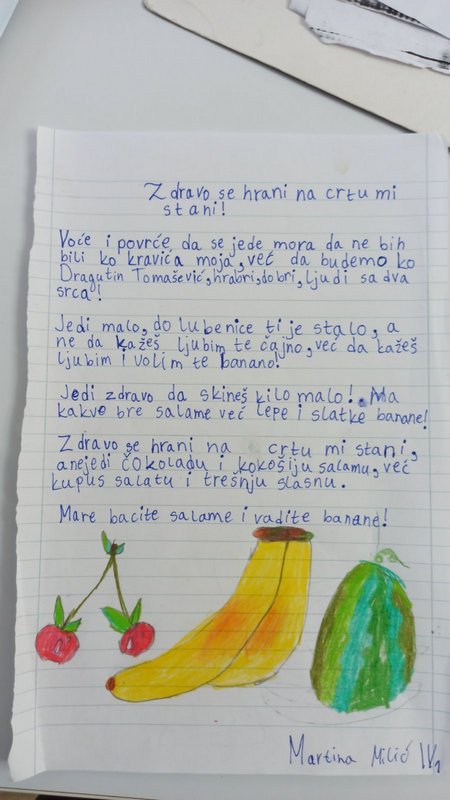 Zdravo se hrani na crtu mi
stani!
Voće i povrće da se jede mora da ne bih
bili ko kravića moja, već da budemo ko
Dragutin Tomašević, hrabri, dobri, ljudi sa dva
srca!
Jedi malo, do lubenice ti je stalo, a
ne da kažeš ljubim te čajno, već da kažeš
ljubim i volim te banano!
Jedi zdravo da skineš kilo malo! Ma
kakve bre salame već lepe i slatke banane!
Zdravo se hrani na crtu mi stani,
anejedi čokoladu i kokošiju salamu, već
kupus salatu i trešnju slasnu.
Mare bacite salame i vadite banane!
Martina Milić IV1